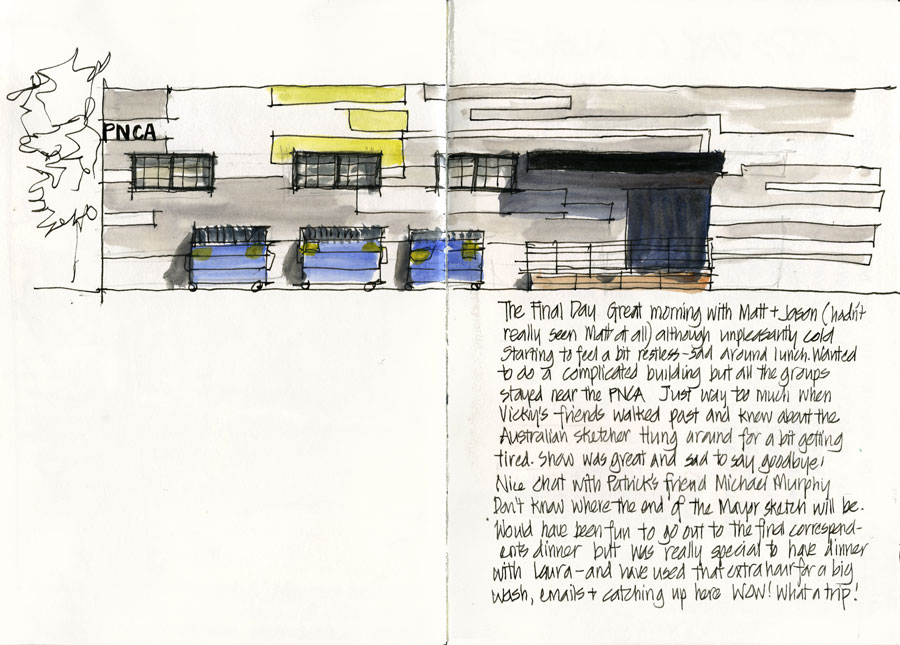 PNCA
The Final Day Great morning with Matt + Jason (hadn't
really seen Matt at all) although unpleasantly cold
Starting to feel a bit restless-sad around lunch. Wanted
to do a complicated building but all the groups
stayed near the PNCA Just way too much when
Vicky's friends walked past and knew about the
Australian sketcher Hung around for a bit getting
tired. Show was great and sad to say goodbye!
Nice chat with Patrick's friend Michael Murphy
Don't know where the end of the Mayor sketch will be.
Would have been fun to go out to the final correspond-
ents dinner but was really special to have dinner
with Laura - and have used that extra hair for a big
wash, emails + catching up here WOW! What a trip!